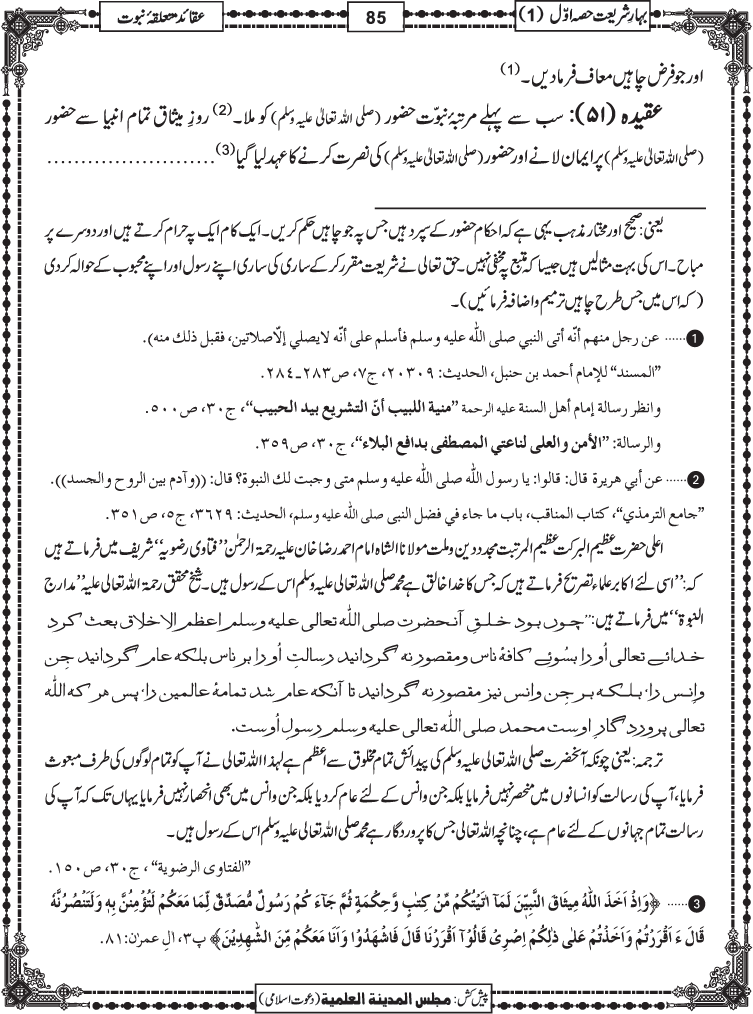 بہار شریعت حصہ اوّل (1)
85
عقائد متعلقۂ نبوت
اور جو فرض چاہیں معاف فرما دیں۔(1)
عقیدہ (۵۱): سب سے پہلے مرتبۂ نبوّت حضور (صلی اللہ تعالیٰ علیہ وسلم) کو ملا۔(2) روزِ میثاق تمام انبیا سے حضور
(صلی اللہ تعالیٰ علیہ وسلم) پر ایمان لانے اور حضور (صلی اللہ تعالیٰ علیہ وسلم) کی نصرت کرنے کا عہد لیا گیا(3).........................
یعنی: صحیح اور مختار مذہب یہی ہے کہ احکام حضور کے سپرد ہیں جس پہ جو چاہیں حکم کریں۔ ایک کام ایک پہ حرام کرتے ہیں اور دوسرے پر
مباح۔ اس کی بہت مثالیں ہیں جیسا کہ متبع پہ مخفی نہیں۔ حق تعالی نے شریعت مقرر کر کے ساری کی ساری اپنے رسول اور اپنے محبوب کے حوالہ کر دی
(کہ اس میں جس طرح چاہیں ترمیم و اضافہ فرمائیں)۔
1...... عن رجل منهم أنّه أتى النبي صلى اللّٰه عليه وسلم فأسلم على أنّه لايصلي إلّاصلاتين، فقبل ذلك منه).
”المسند“ للإمام أحمد بن حنبل، الحديث: ٢٠٣٠٩، ج٧، ص٢٨٣ـ٢٨٤.
وانظر رسالة إمام أهل السنة عليه الرحمة ”منية اللبيب أنّ التشريع بيد الحبيب“، ج٣٠، ص٥٠٠.
والرسالة: ”الأمن والعلى لناعتي المصطفى بدافع البلاء“، ج٣٠، ص٣٥٩.
2...... عن أبي هريرة قال: قالوا: يا رسول اللّٰه صلى اللّٰه عليه وسلم متى وجبت لك النبوة؟ قال: ((وآدم بين الروح والجسد)).
”جامع الترمذي“، كتاب المناقب، باب ما جاء في فضل النبى صلى اللّٰه عليه وسلم، الحديث: ٣٦٢٩، ج٥، ص٣٥١.
اعلی حضرت عظیم البرکت عظیم المرتبت مجدد دین وملت مولانا الشاہ امام احمد رضا خان علیہ رحمۃ الرحمٰن ’’فتاوی رضویہ‘‘ شریف میں فرماتے ہیں
کہ: ’’اسی لئے اکابر علماء تصریح فرماتے ہیں کہ جس کا خدا خالق ہے محمد صلی اللہ تعالی علیہ وسلم اس کے رسول ہیں۔ شیخ محقق رحمۃ اللہ تعالی علیہ ’’مدارج
النبوۃ‘‘ میں فرماتے ہیں: ’’چوں بود خلقِ آنحضرت صلى اللّٰه تعالى عليه وسلم اعظم الاخلاق بعث کرد
خدائے تعالی اُو را بسُوئے کافۂ ناس ومقصور نہ گردانید رسالتِ اُو را بر ناس بلکہ عام گردانید جن
وانس را، بلکہ بر جن وانس نیز مقصور نہ گردانید تا آنکہ عام شد تمامۂ عالمین را، پس ھر کہ اللّٰہ
تعالی پروردگار اوست محمد صلى اللّٰه تعالى عليه وسلم رسولِ اُوست.
ترجمہ: یعنی چونکہ آنحضرت صلی اللہ تعالی علیہ وسلم کی پیدائش تمام مخلوق سے اعظم ہے لہذا اللہ تعالی نے آپ کو تمام لوگوں کی طرف مبعوث
فرمایا، آپ کی رسالت کو انسانوں میں منحصر نہیں فرمایا بلکہ جن وانس کے لئے عام کر دیا بلکہ جن وانس میں بھی انحصار نہیں فرمایا یہاں تک کہ آپ کی
رسالت تمام جہانوں کے لئے عام ہے، چنانچہ اللہ تعالی جس کا پروردگار ہے محمد صلی اللہ تعالی علیہ وسلم اس کے رسول ہیں۔
”الفتاوى الرضوية“، ج٣٠، ص١٥٠.
3...... ﴿وَاِذْ اَخَذَ اللّٰهُ مِيْثَاقَ النَّبِيّٖنَ لَمَاۤ اٰتَيْتُكُمْ مِّنْ كِتٰبٍ وَّحِكْمَةٍ ثُمَّ جَآءَكُمْ رَسُوْلٌ مُّصَدِّقٌ لِّمَا مَعَكُمْ لَتُؤْمِنُنَّ بِهٖ وَلَتَنْصُرُنَّهٗ
قَالَ ءَاَقْرَرْتُمْ وَاَخَذْتُمْ عَلٰى ذٰلِكُمْ اِصْرِيْ قَالُوْۤا اَقْرَرْنَا قَالَ فَاشْهَدُوْا وَاَنَا مَعَكُمْ مِّنَ الشّٰهِدِيْنَ﴾ پ٣، اٰل عمرٰن: ٨١.
پیش کش: مجلس المدينة العلمية (دعوتِ اسلامی)